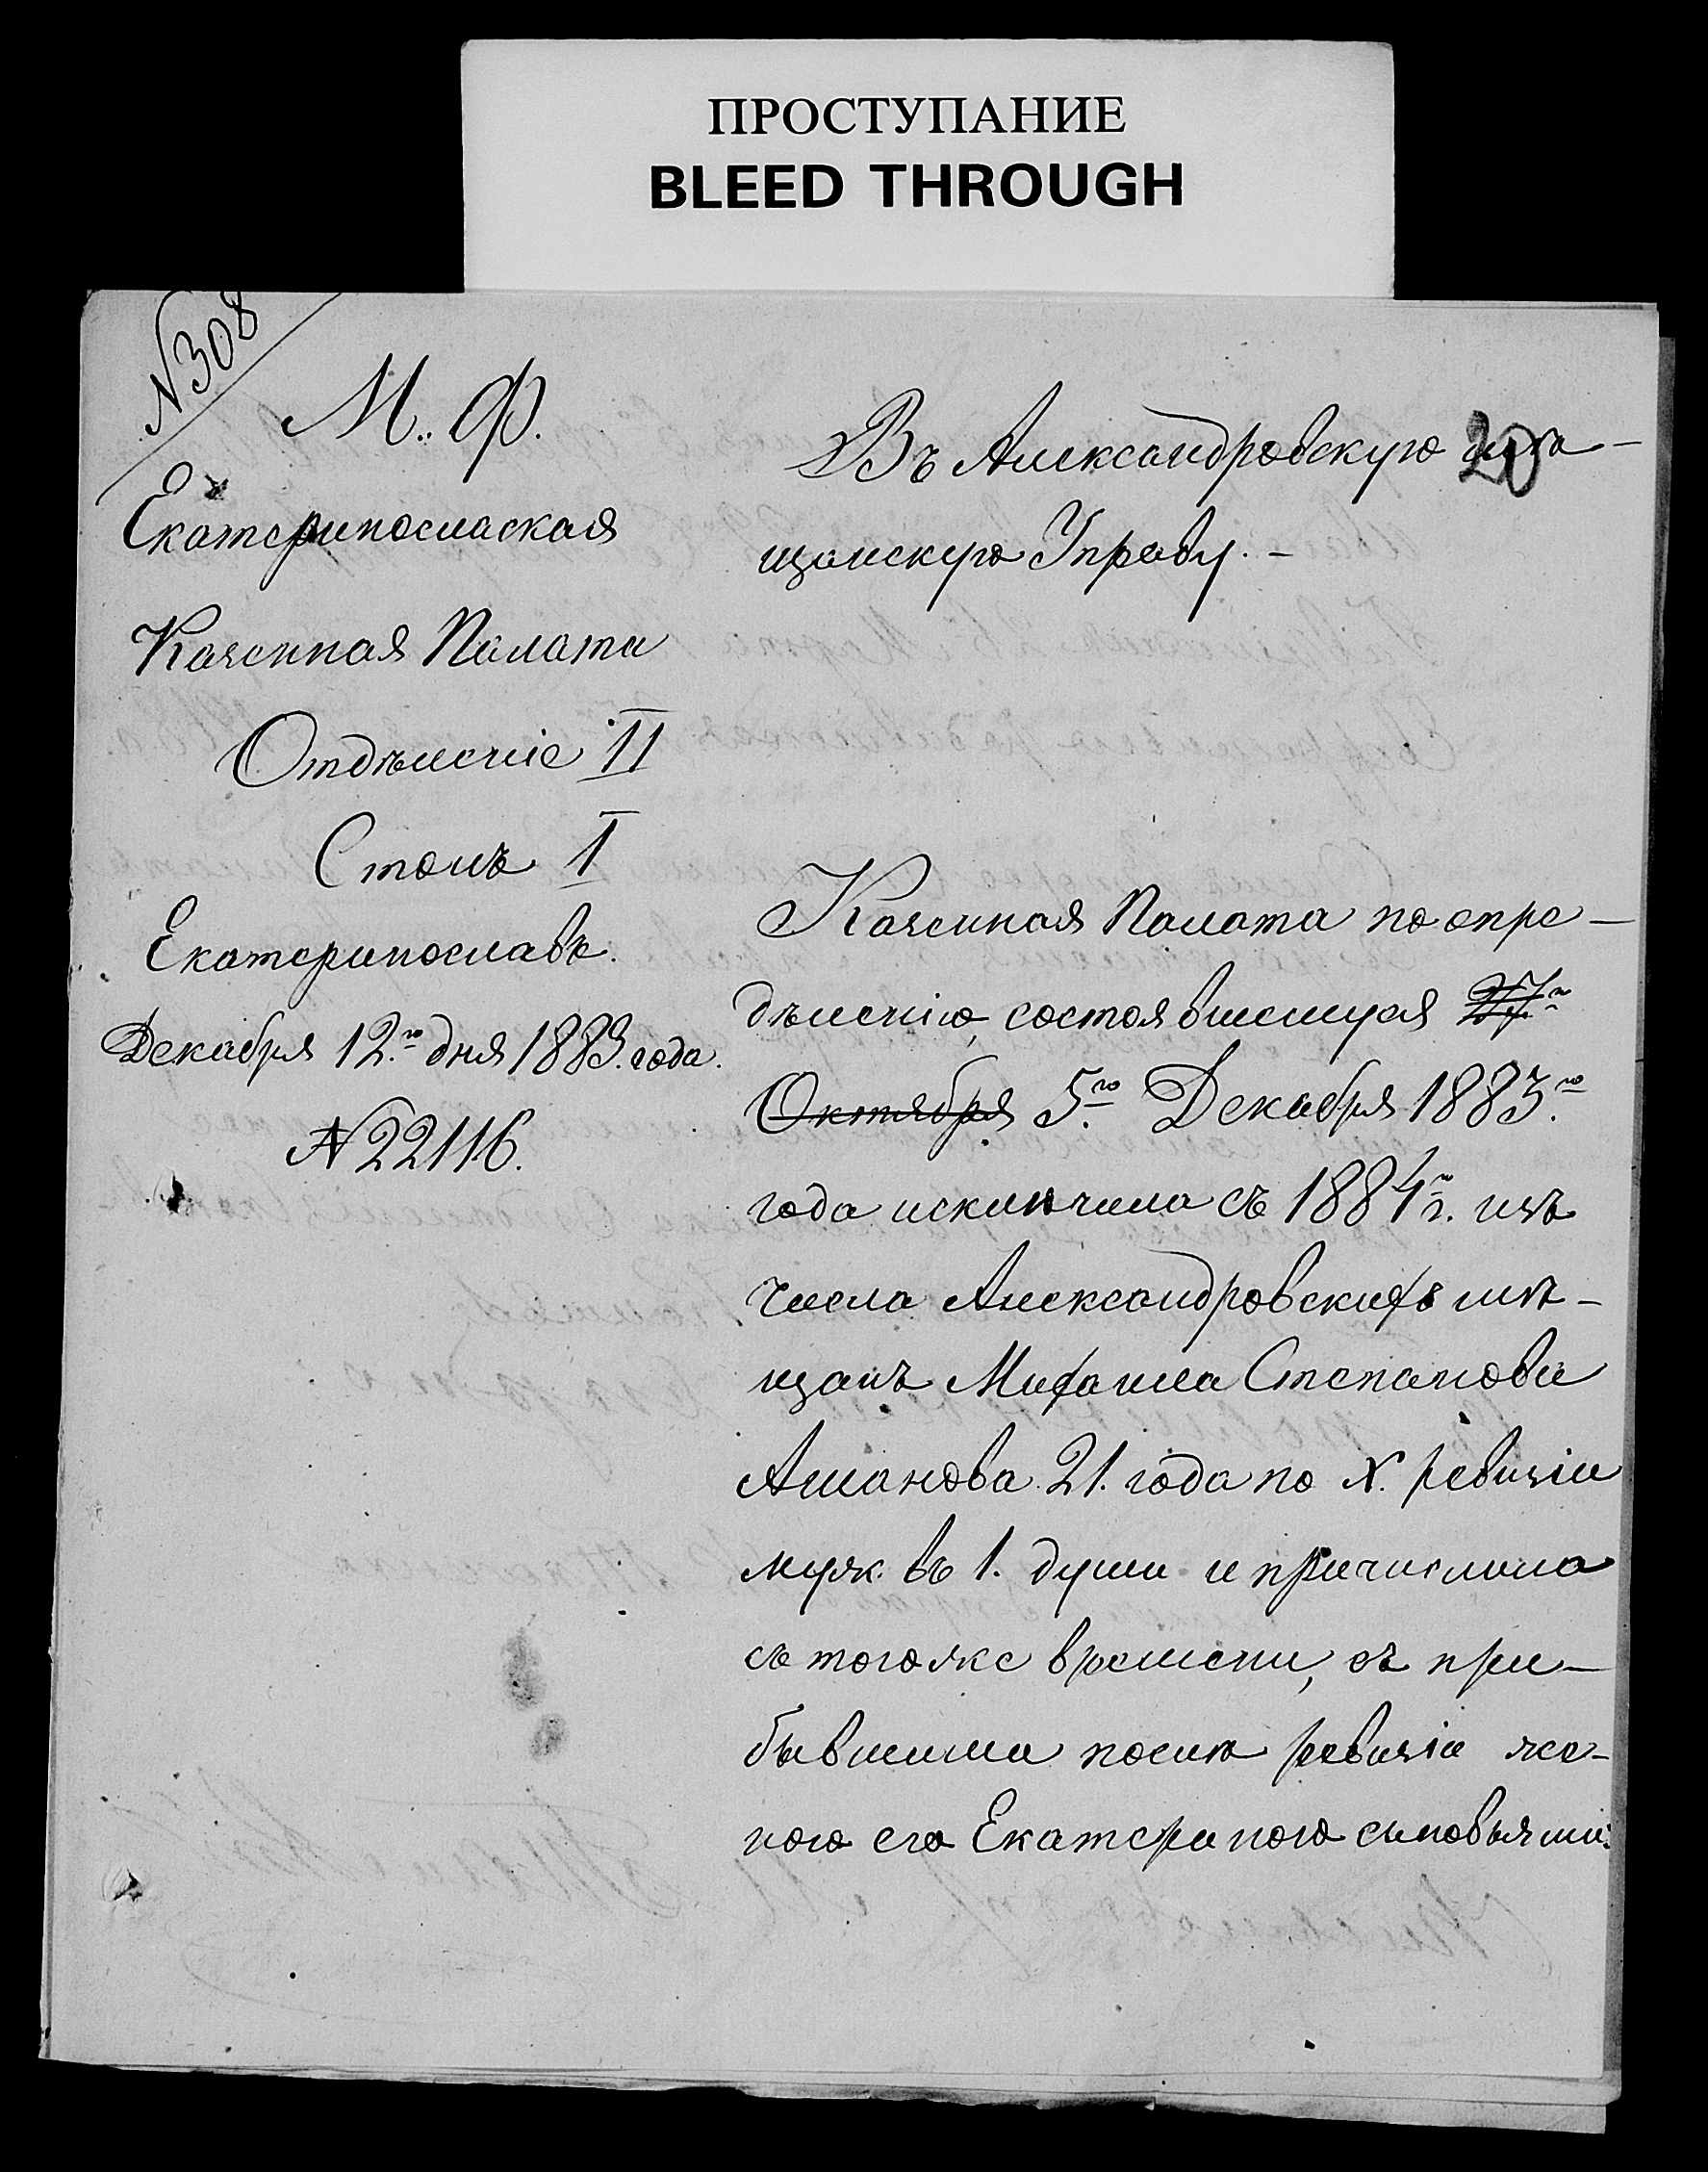 ПРОСТУПАНИЕ
BLEED THROUGH
№308
М. Ф.
Екатеринославская
Казенная Палата
Отдѣленіе II
Столъ I
Екатеринославъ.
Декабря 12.го дня 1883. года.
№22116.
20
Въ Александровскую мѣ-
щанскую Управу. -
Казенная Палата по опре-
дѣленію, состоявшемуся 27го
Октября 5.го Декабря 1883.го
года исключила съ 1884 г. изъ
числа Александровскихъ мѣ-
щанъ Михаила Степанова
Ашанова 21. года по X. ревизіи
муж. въ 1. души и причислила
съ того же времени, съ при-
бывшими послѣ ревизіи же-
ною его Екатериною сыновьями: